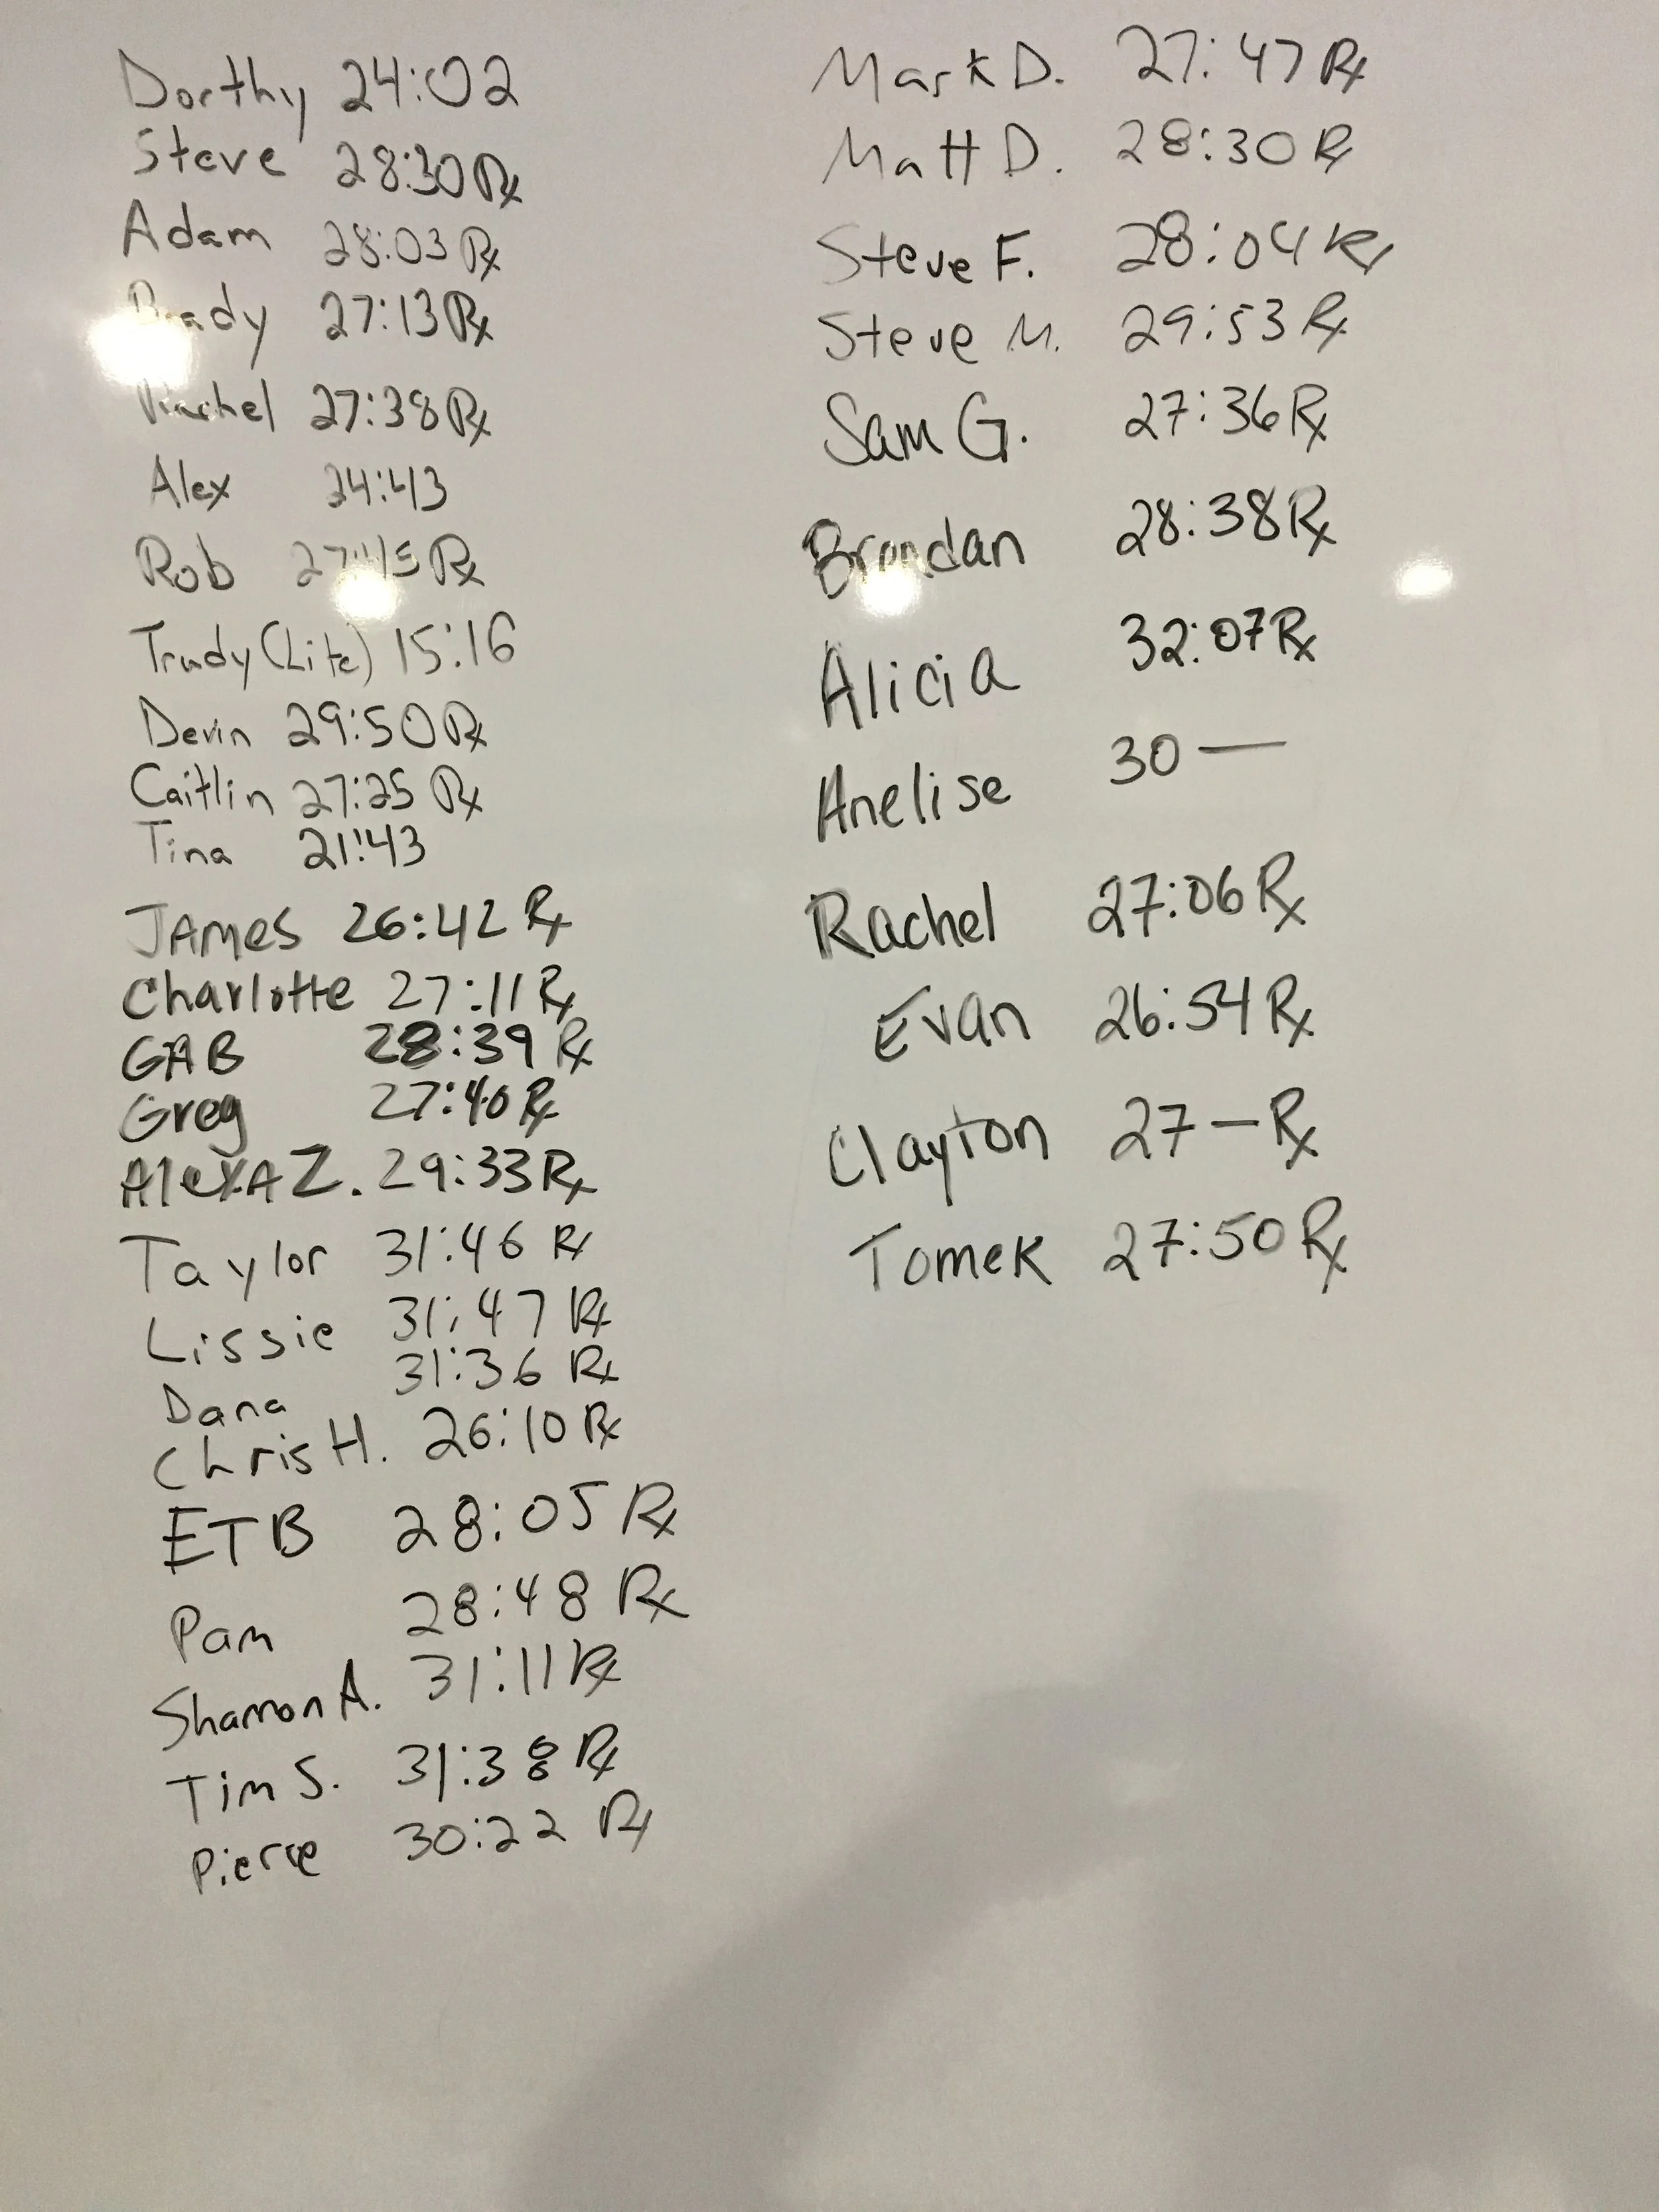 Dorthy 24:02
Steve 28:30 Rx
Adam 28:03 Rx
Brady 27:13 Rx
Rachel 27:38 Rx
Alex 24:43
Rob Rx
Trudy (Lite) 15:16
Devin 29:50 Rx
Caitlin 27:25 Rx
Tina 21:43
JAMES 26:42 Rx
Charlotte 27:11 Rx
GAB 28:39 Rx
Greg 27:40 Rx
AlexA Z. 29:33 Rx
Taylor 31:46 Rx
Lissie 31:47 Rx
Dana 31:36 Rx
Chris H. 26:10 Rx
ETB 28:05 Rx
Pam 28:48 Rx
Shannon A. 31:11 Rx
Tim S. 31:38 Rx
Pierre 30:22 Rx
Mark D. 27:47 Rx
Matt D. 28:30 Rx
Steve F. 28:04 Rx
Steve M. 29:53 Rx
Sam G. 27:36 Rx
Brendan 28:38 Rx
Alicia 32:07 Rx
Anelise 30 —
Rachel 27:06 Rx
Evan 26:54 Rx
Clayton 27 — Rx
Tomek 27:50 Rx